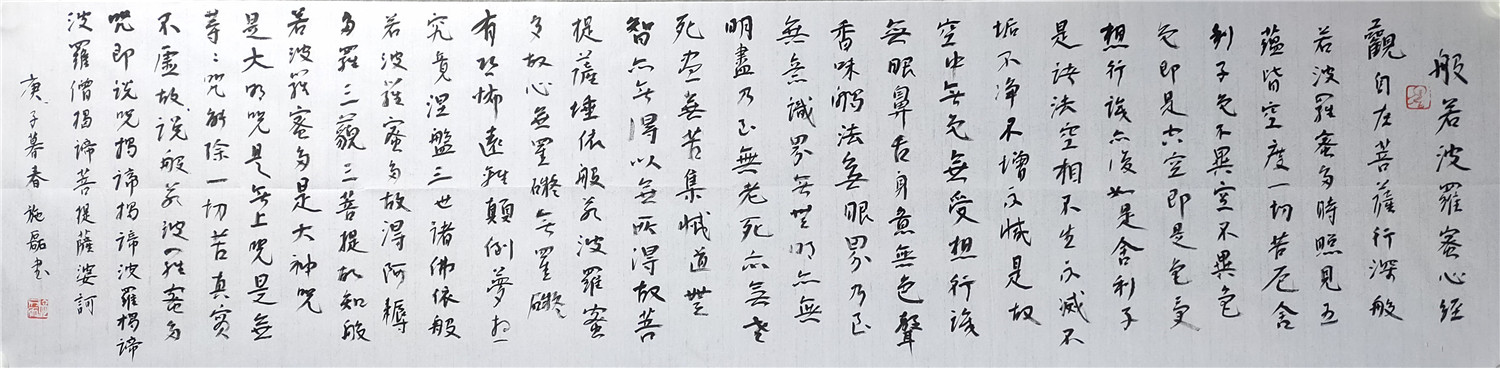 般若波羅蜜心经
觀自在菩薩行深般
若波羅蜜多時照見五
蕴皆空度一切苦厄舍
利子色不異空不異色
色即是空空即是色受
想行識亦復如是舍利子
是诸法空相不生不滅不
垢不净不增不减是故
空中無色無受想行識
無眼鼻舌身意無色聲
香味觸法無眼界乃至
無意識界無無明亦無
明盡乃至無老死亦無老
死盡無苦集滅道無
智亦無得以無所得故菩
提薩埵依般若波羅蜜
多故心無罣礙無罣礙
故有恐怖遠離顛倒夢想
究竟涅盤三世诸佛依般
若波羅蜜多故得阿耨
多羅三藐三菩提故知般
若波羅蜜多是大神咒
是大明咒是無上咒是無
等等咒能除一切苦真实
不虚故说般若波羅蜜多
咒即说咒揭谛揭谛波羅揭谛
波羅僧揭谛菩提薩婆訶
庚子暮春 施磊书